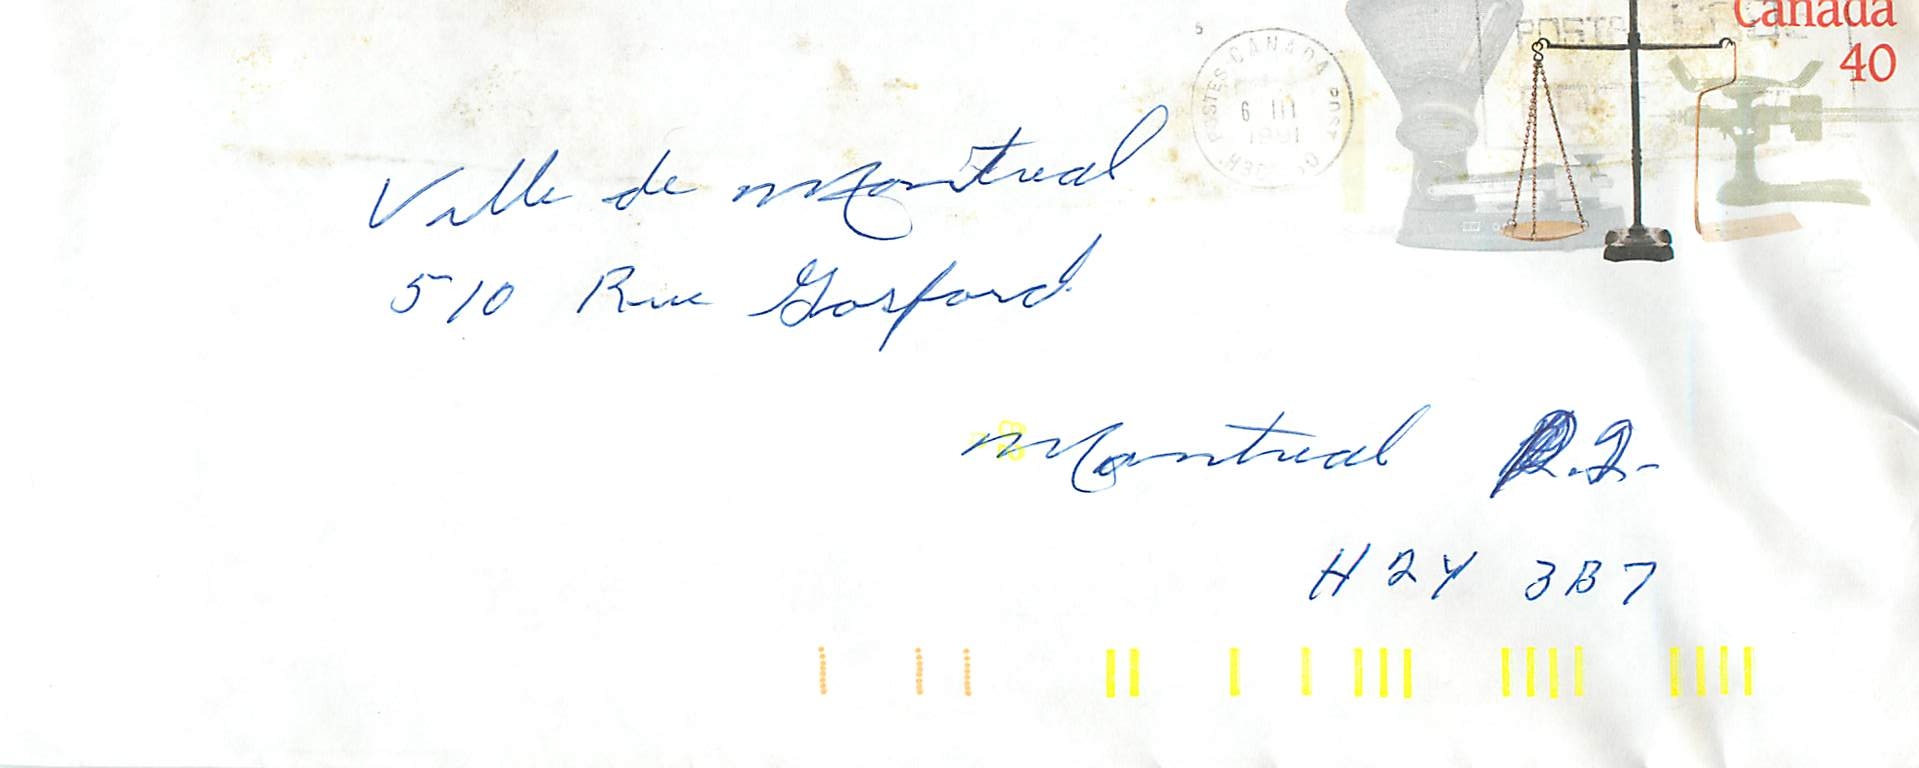 Canada
40
POSTES CANADA POST
6 III
1991
Ville de Montreal
510 Rue Gosford
Montreal P.Q.
H2Y 3B7